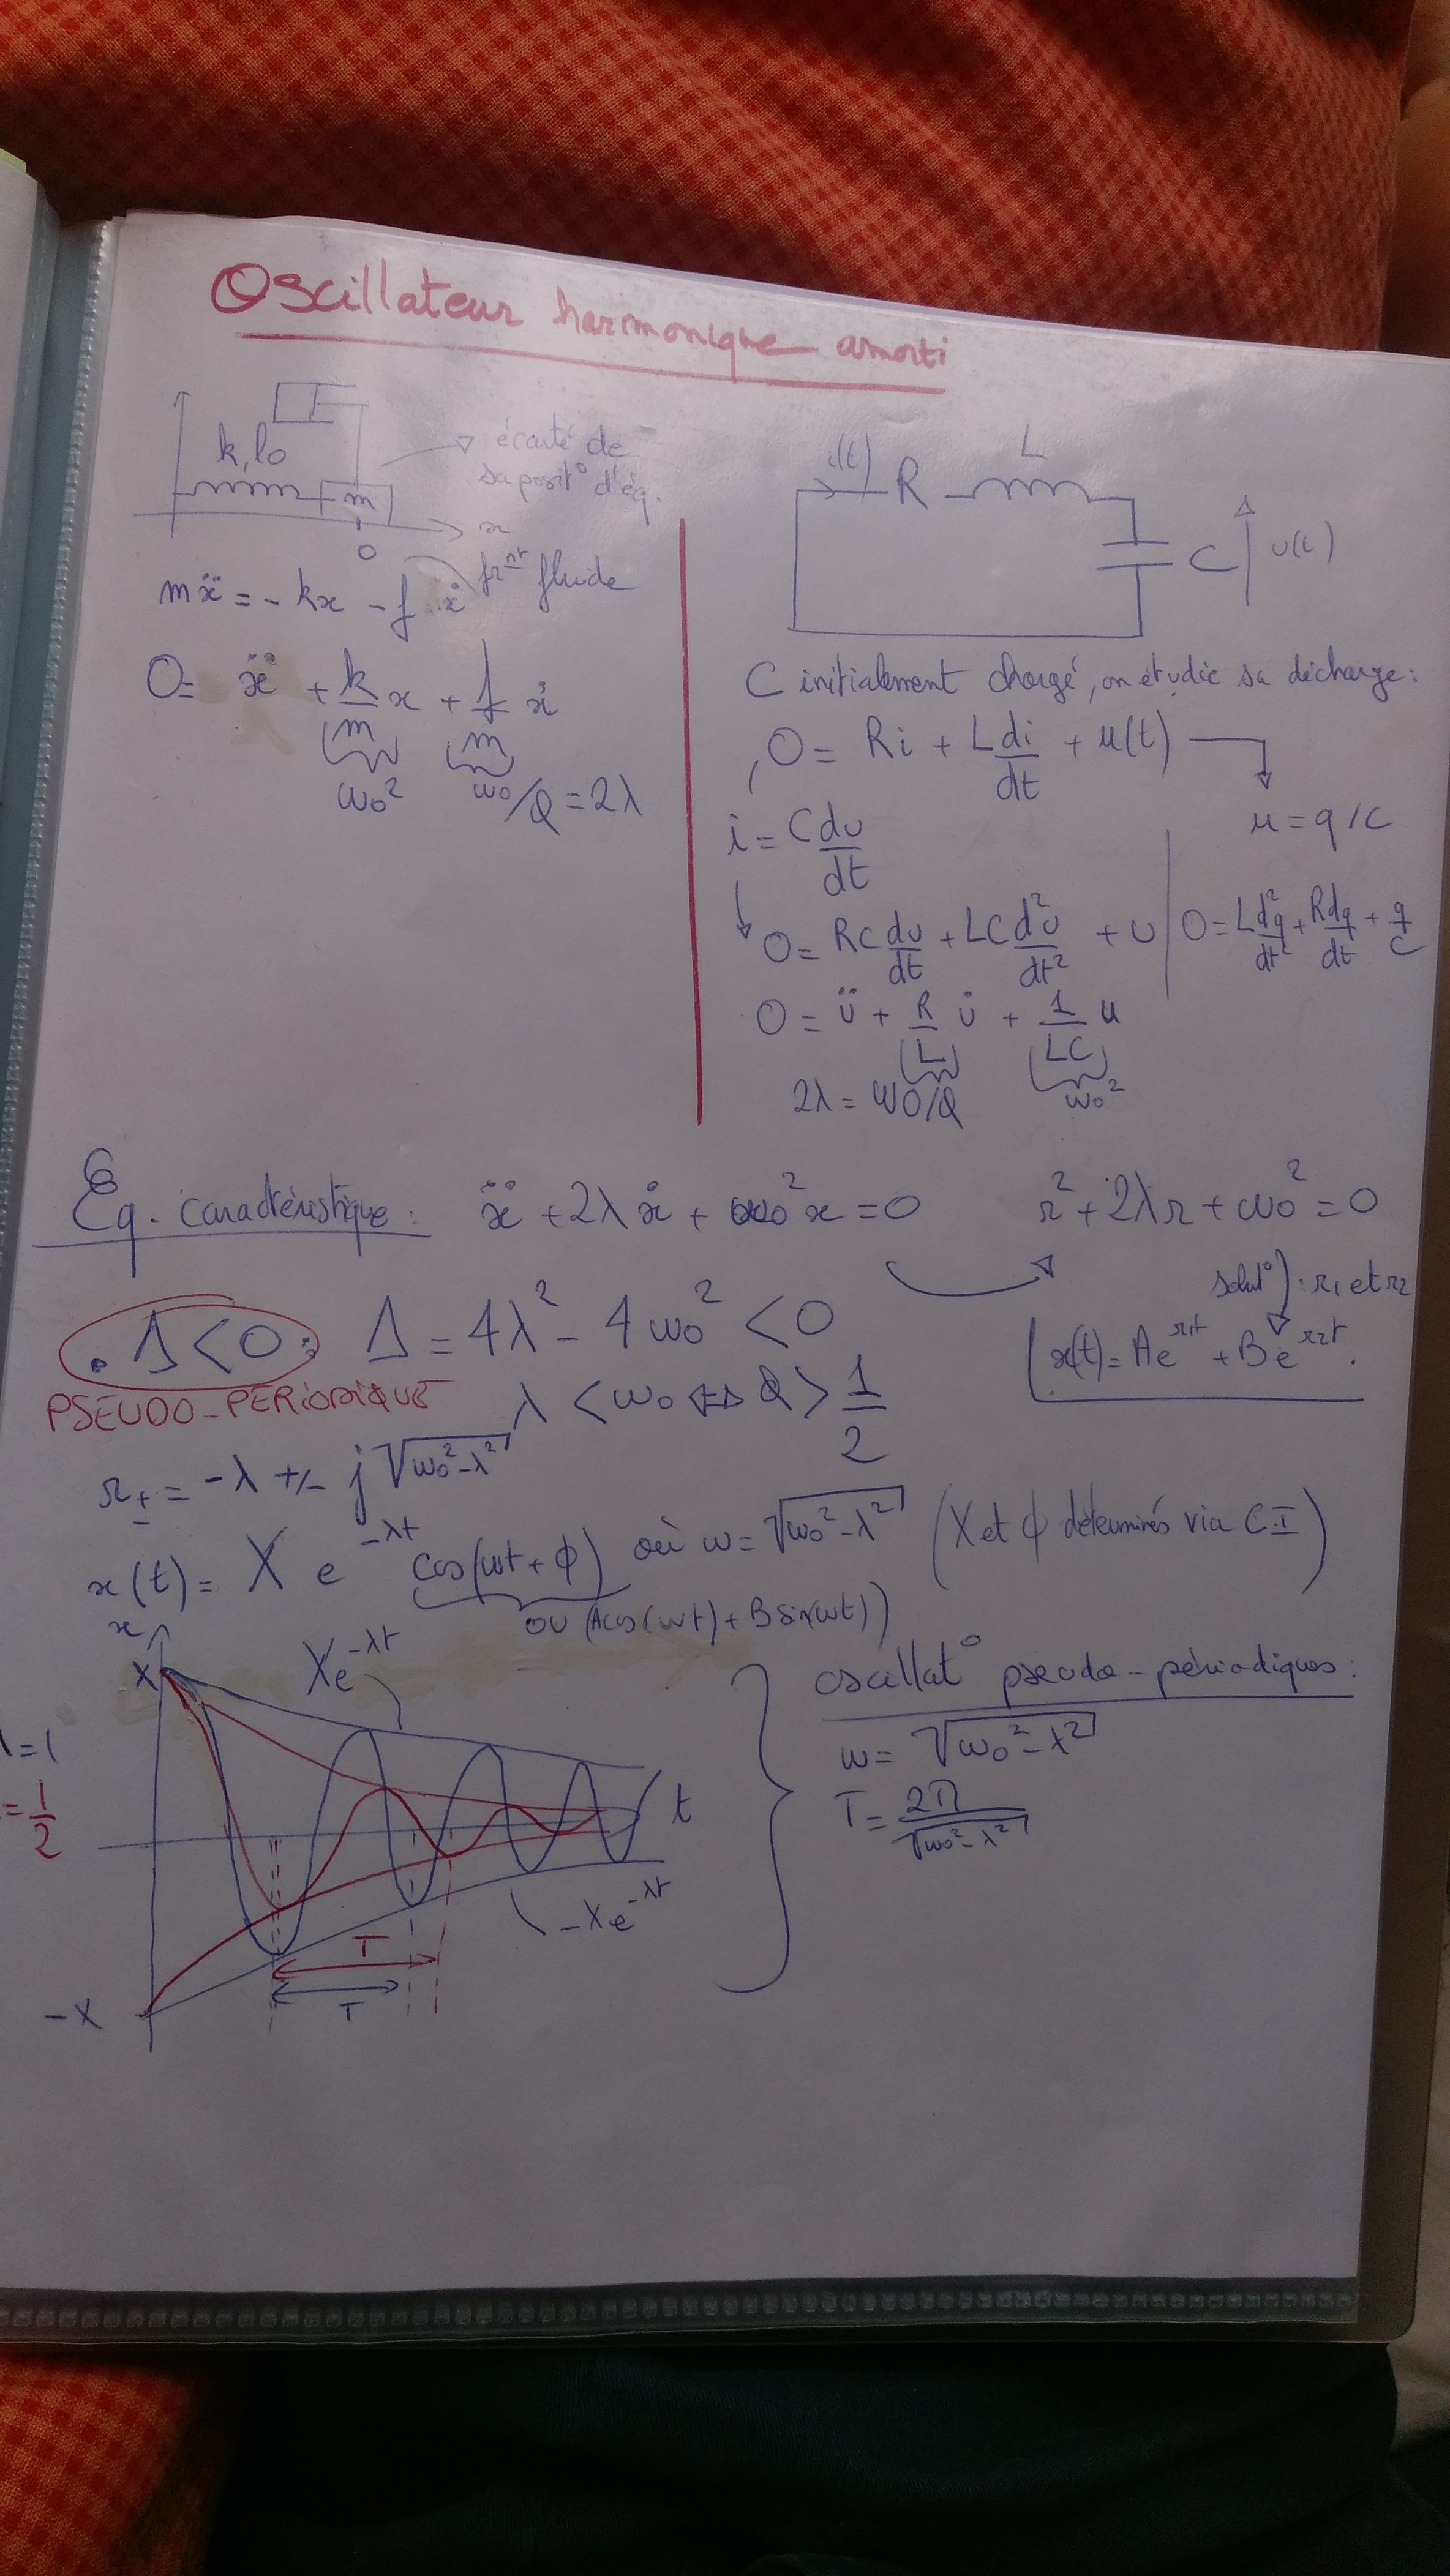 Oscillateur harmonique amorti
k, l₀
m
écarté de
sa posit° d'éq.
x
O
mẍ = - kx - f ẋ
frnt fluide
0 = ẍ + k/m x + f/m ẋ
ω₀² ω₀/Q = 2λ
i(t) R L
C u(t)
C initialement chargé, on étudie sa décharge :
0 = Ri + L di/dt + u(t)
u = q/C
i = C du/dt
0 = RC du/dt + LC d²u/dt² + u
0 = L d²q/dt² + R dq/dt + q/C
0 = ü + R/L u̇ + 1/LC u
2λ = ω₀/Q ω₀²
Eq. caractéristique : ẍ + 2λẋ + ω₀²x = 0 r² + 2λr + ω₀² = 0
solut° : r₁ et r₂
x(t) = Ae^r₁t + Be^r₂t.
. Δ < 0 : Δ = 4λ² - 4ω₀² < 0
PSEUDO-PERIODIQUE
λ < ω₀ ⇔ Q > 1/2
r± = -λ +/- j√(ω₀² - λ²)
x(t) = X e^-λt cos(ωt + ϕ) où ω = √(ω₀² - λ²) (X et ϕ déterminés via C.I)
ou (Acos(ωt) + B sin(ωt))
x
X
Xe^-λt
= 1
= 1/2
t
-Xe^-λt
T
T
-X
oscillat° pseudo-périodiques :
ω = √(ω₀² - λ²)
T = 2π/√(ω₀² - λ²)